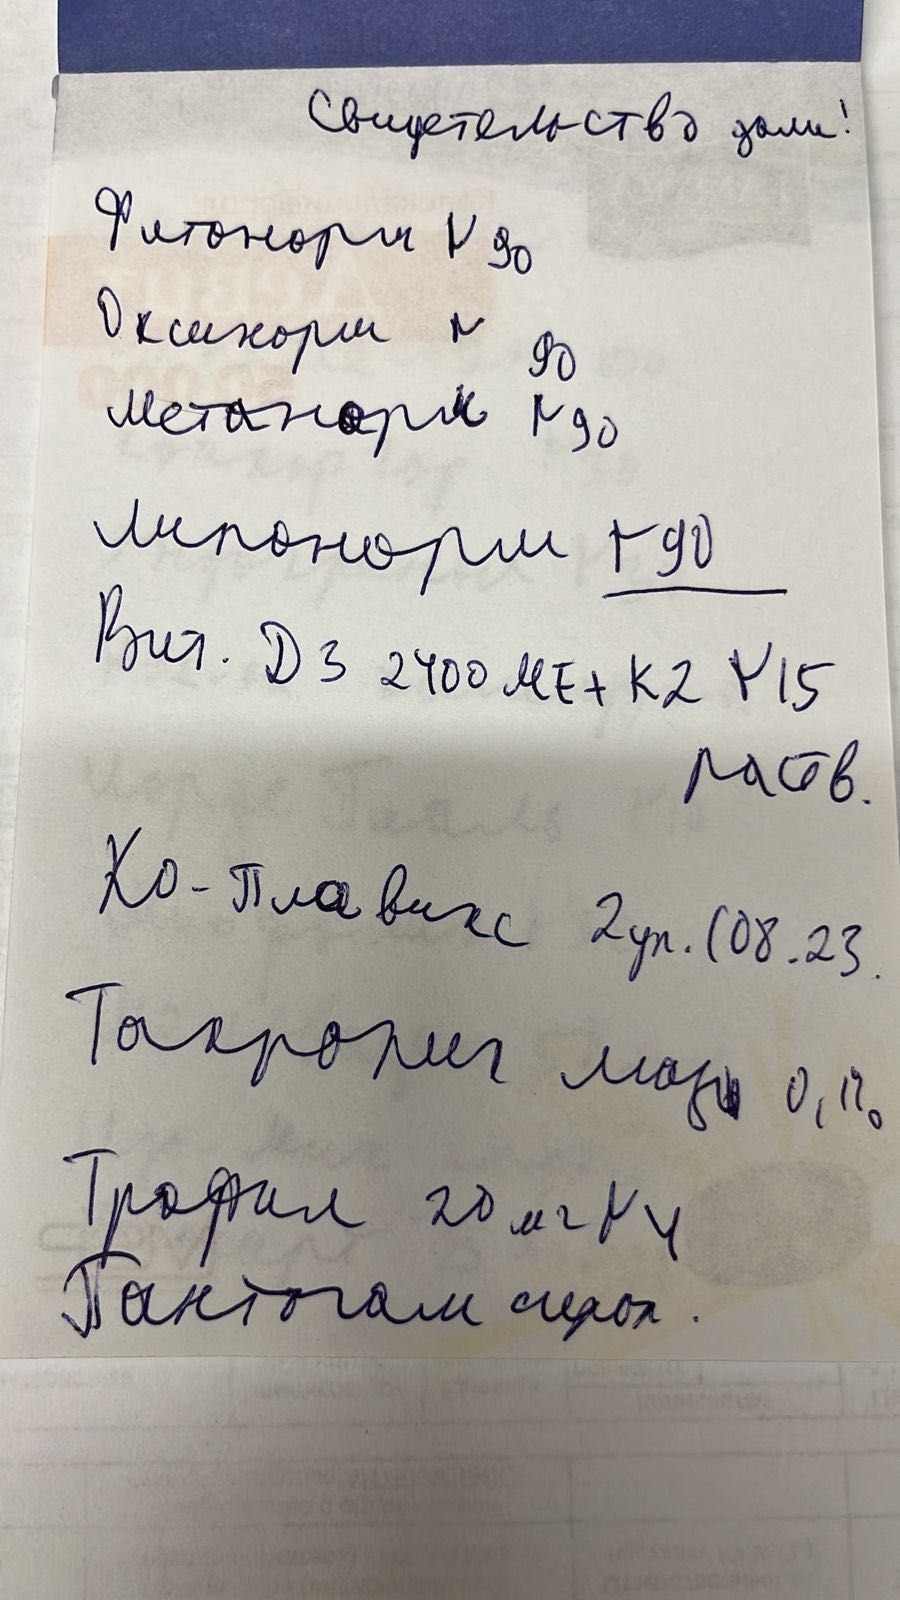 Свидетельство дали!
Фитонорм N 90
Оксинорм N 90
Метанорм N 90
Липонорм N 90
Вит. D3 2400 МЕ + К2 N 15
раств.
Ко-Плавикс 2 уп. (08.23.
Такропик мазь 0,1%
Трофил 20 мг N 4
Пантогам сироп.